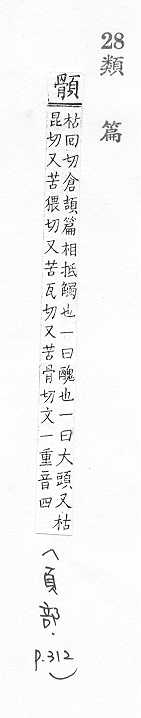 28
類篇
顝
枯回切倉頡篇相抵觸也一曰醜也一曰大頭又枯
昆切又苦猥切又苦瓦切又苦骨切文一重音四
(頁部.
p.312)